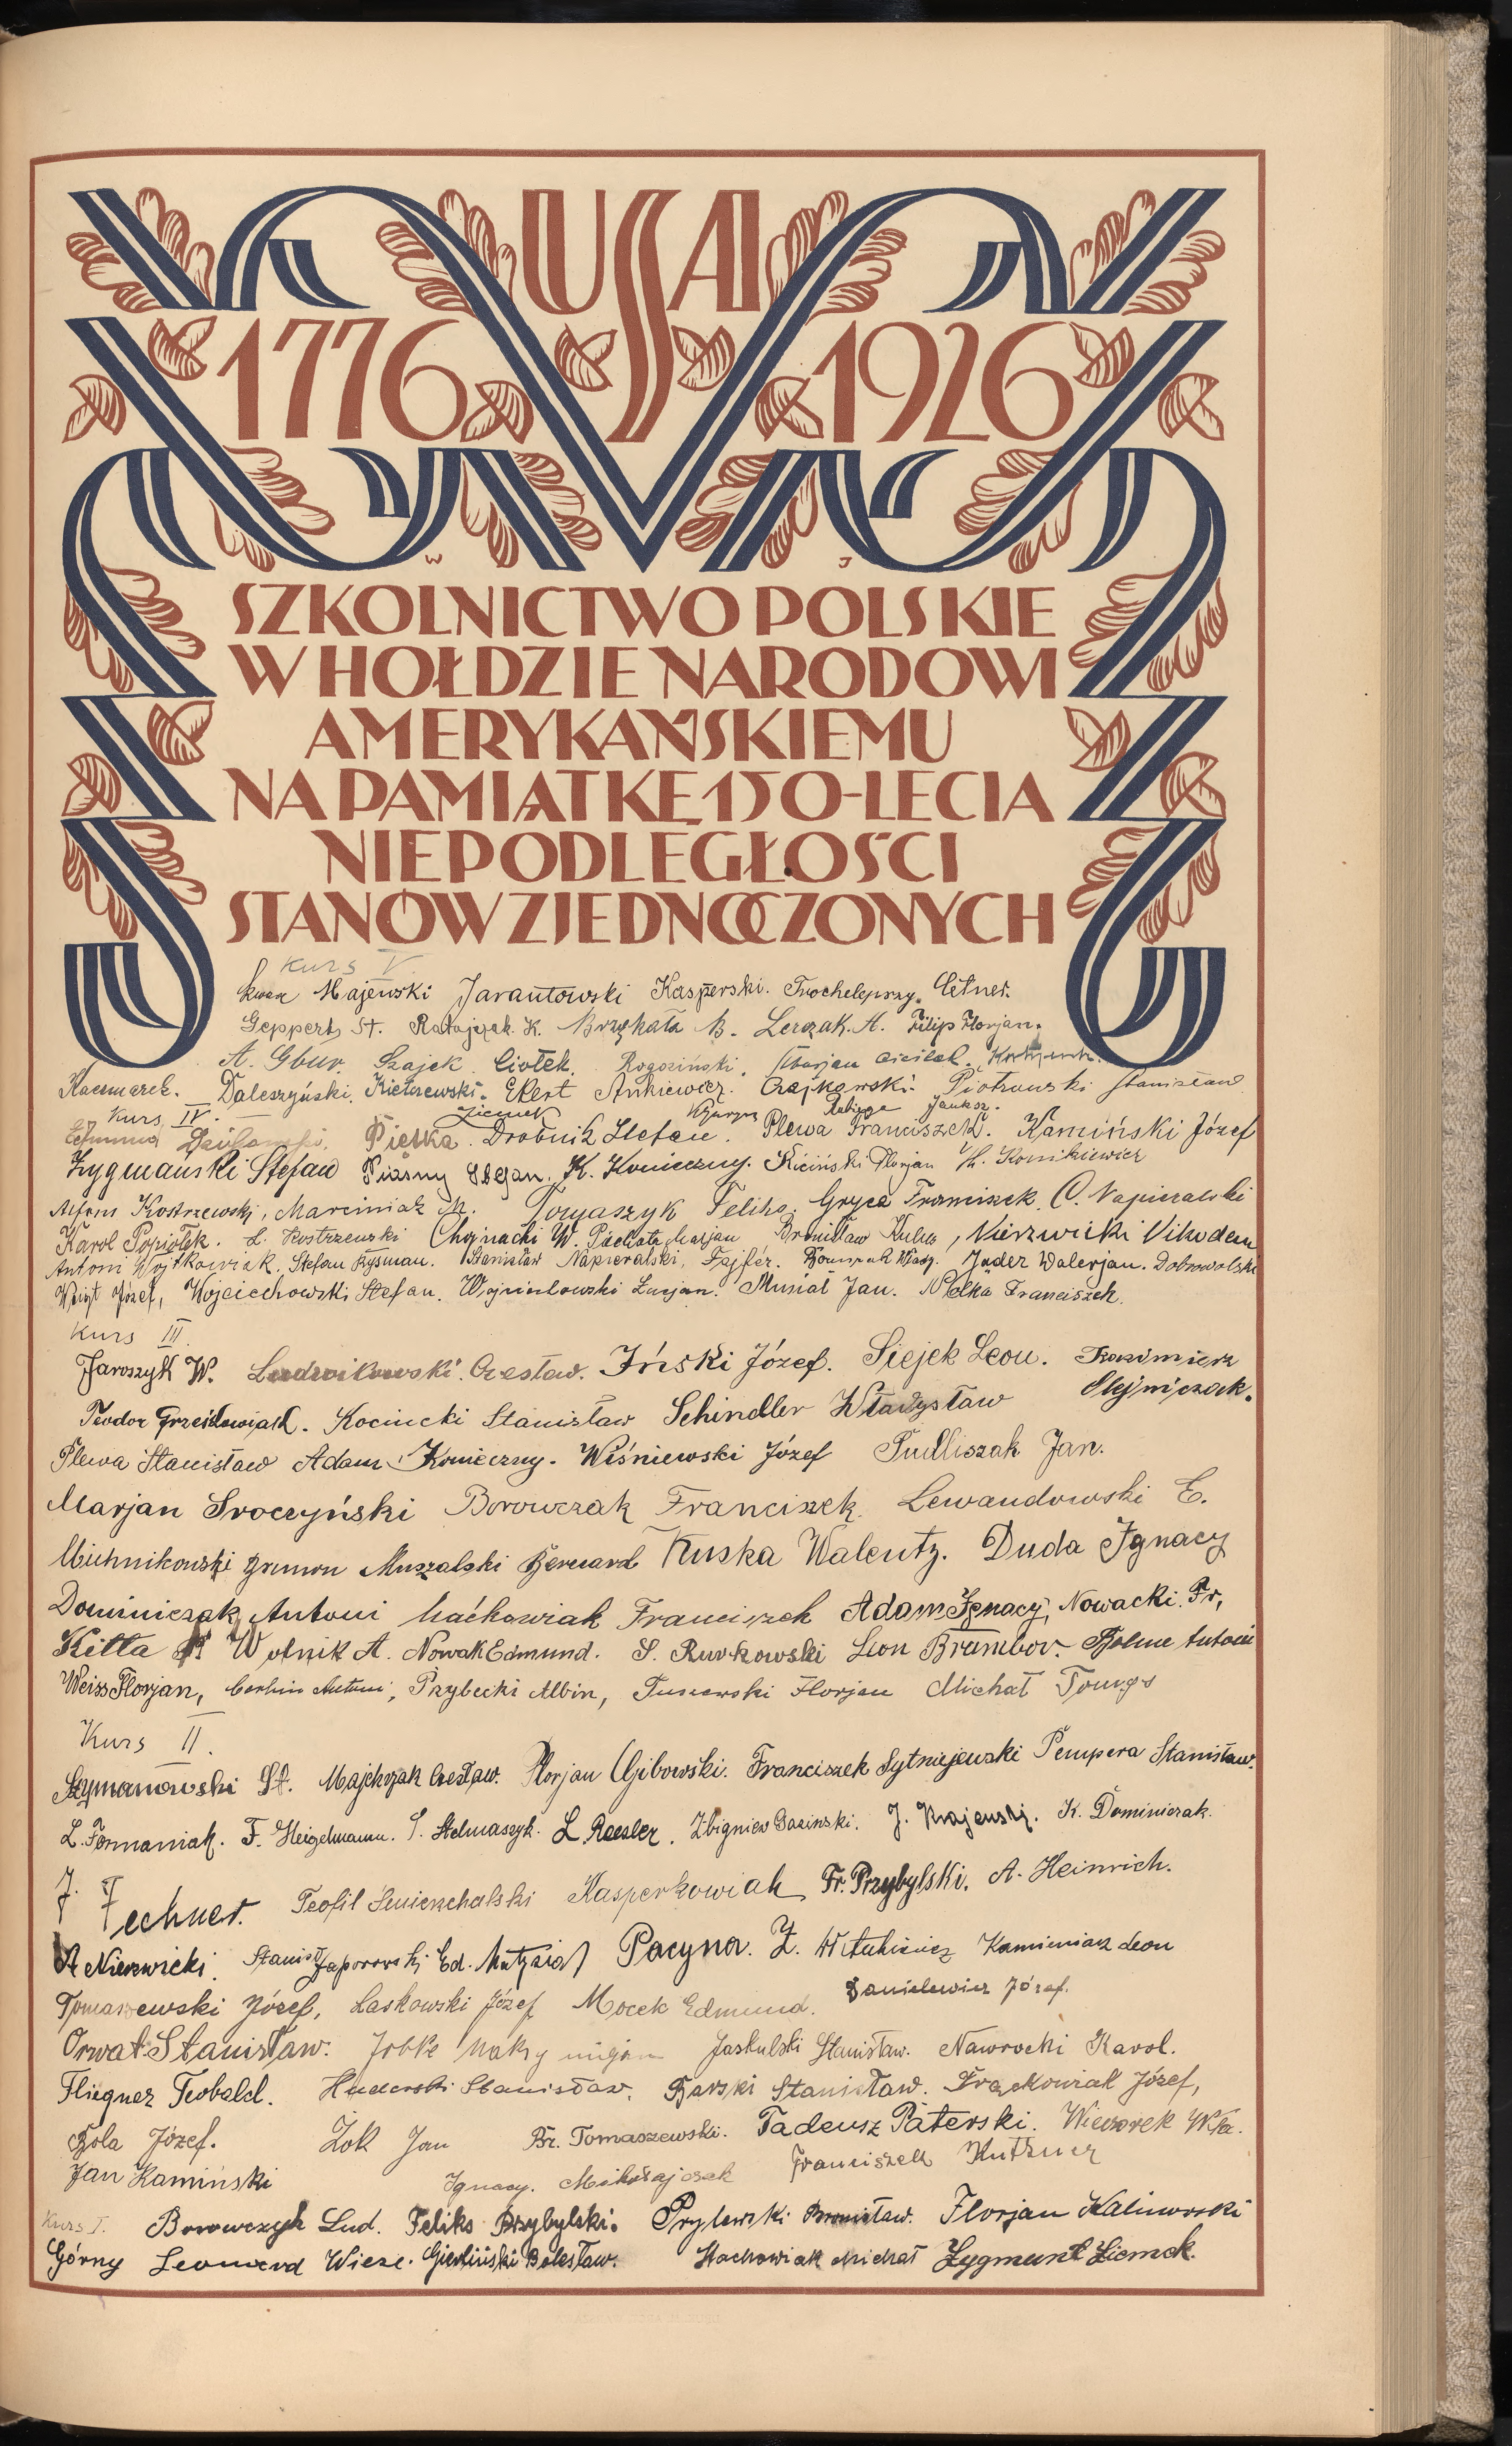 USA
1776 1926
W J
SZKOLNICTWO POLSKIE
W HOŁDZIE NARODOWI
AMERYKAŃSKIEMU
NA PAMIĄTKĘ 150-LECIA
NIEPODLEGŁOŚCI
STANÓW ZJEDNOCZONYCH
Kurs V
Majewski Jarantowski Kasperski.
Geppert St. Ratajczak K. B. Lerczak. A. Filip Florjan.
A. Gbur. Szajek. Ciołek. Rogoziński.
Kaczmarek. Daleszyński. Kiełczewski. Ekert Ankiewicz. Czajkowski. Piotrowski Stanisław
Kurs IV.
Ziemek
Piętka. Drobnik Stefan. Plewa Franciszek. Kamiński Józef
Zygmański Stefan K. Konieczny. Kiciński Florjan
Alfons Kostrzewski, Marciniak M. Tomaszyk Feliks. Gryca Franciszek. C. Napieralski
Karol Popiołek. L. Kostrzewski Chojnacki W. Pachota Marjan Bronisław Kulus, Nierzwicki Nikodem
Antoni Wojtkowiak. Stefan Rysman. Stanisław Napieralski, Fajfer. Jader Walerjan. Dobrowolski
Wojt Józef, Wojciechowski Stefan. Wojciechowski Lucjan. Musiał Jan. Pełka Franciszek.
Kurs III.
Jaroszyk W. Ludwikowski. Czesław. Iński Józef. Siejek Leon. Kazimierz
Olejniczak.
Teodor Grześkowiak. Kocincki Stanisław Schindler Władysław
Plewa Stanisław Adam Konieczny. Wiśniewski Józef Pudliszak Jan.
Marjan Sroczyński Borowczak Franciszek. Lewandowski E.
Michnikowski Zenon Muszalski Bernard Kuska Walenty. Duda Ignacy
Dominiczak Antoni Maćkowiak Franciszek Adam Ignacy, Nowacki. Fr,
Kitta Wolnik A. Nowak Edmund. S. Rutkowski Leon Brambor. Antoni
Weiss Florjan, Antoni, Przybecki Albin, Tuszewski Florjan Michał Tomys
Kurs II.
Szymanowski St. Majchrzak Czesław. Florjan Gibowski. Franciszek Sytniejewski Pempera Stanisław.
L. Formaniak. F. Heigelmann. S. Stelmaszyk. L. Roesler. Zbigniew Gasinski. J. Krajewski. K. Dominiczak.
J. Techner. Teofil Kasperkowiak Fr. Przybylski. A. Heinrich.
A Nierzwicki. Ed. Pacyna. Z. Witulkiewicz Kamieniarz Leon
Tomaszewski Józef, Laskowski Józef Mocek Edmund. Danielewicz Józef.
Orwat Stanisław. Jaskulski Stanisław. Nawrocki Karol.
Fliegner Teobald. Huderski Stanisław. Barski Stanisław. Frąckowiak Józef,
Bola Józef. Żok Jan Br. Tomaszewski. Tadeusz Paterski. Wieczorek Wła.
Jan Kamiński Ignacy. Mikołajczak Franciszek Kutzner
Kurs I. Borowczyk Lud. Feliks Przybylski. Prylewski Bronisław. Florjan Kalinowski
Górny Leonard Wiese. Gierliński Bolesław. Stachowiak Michał Zygmunt Ziemek.